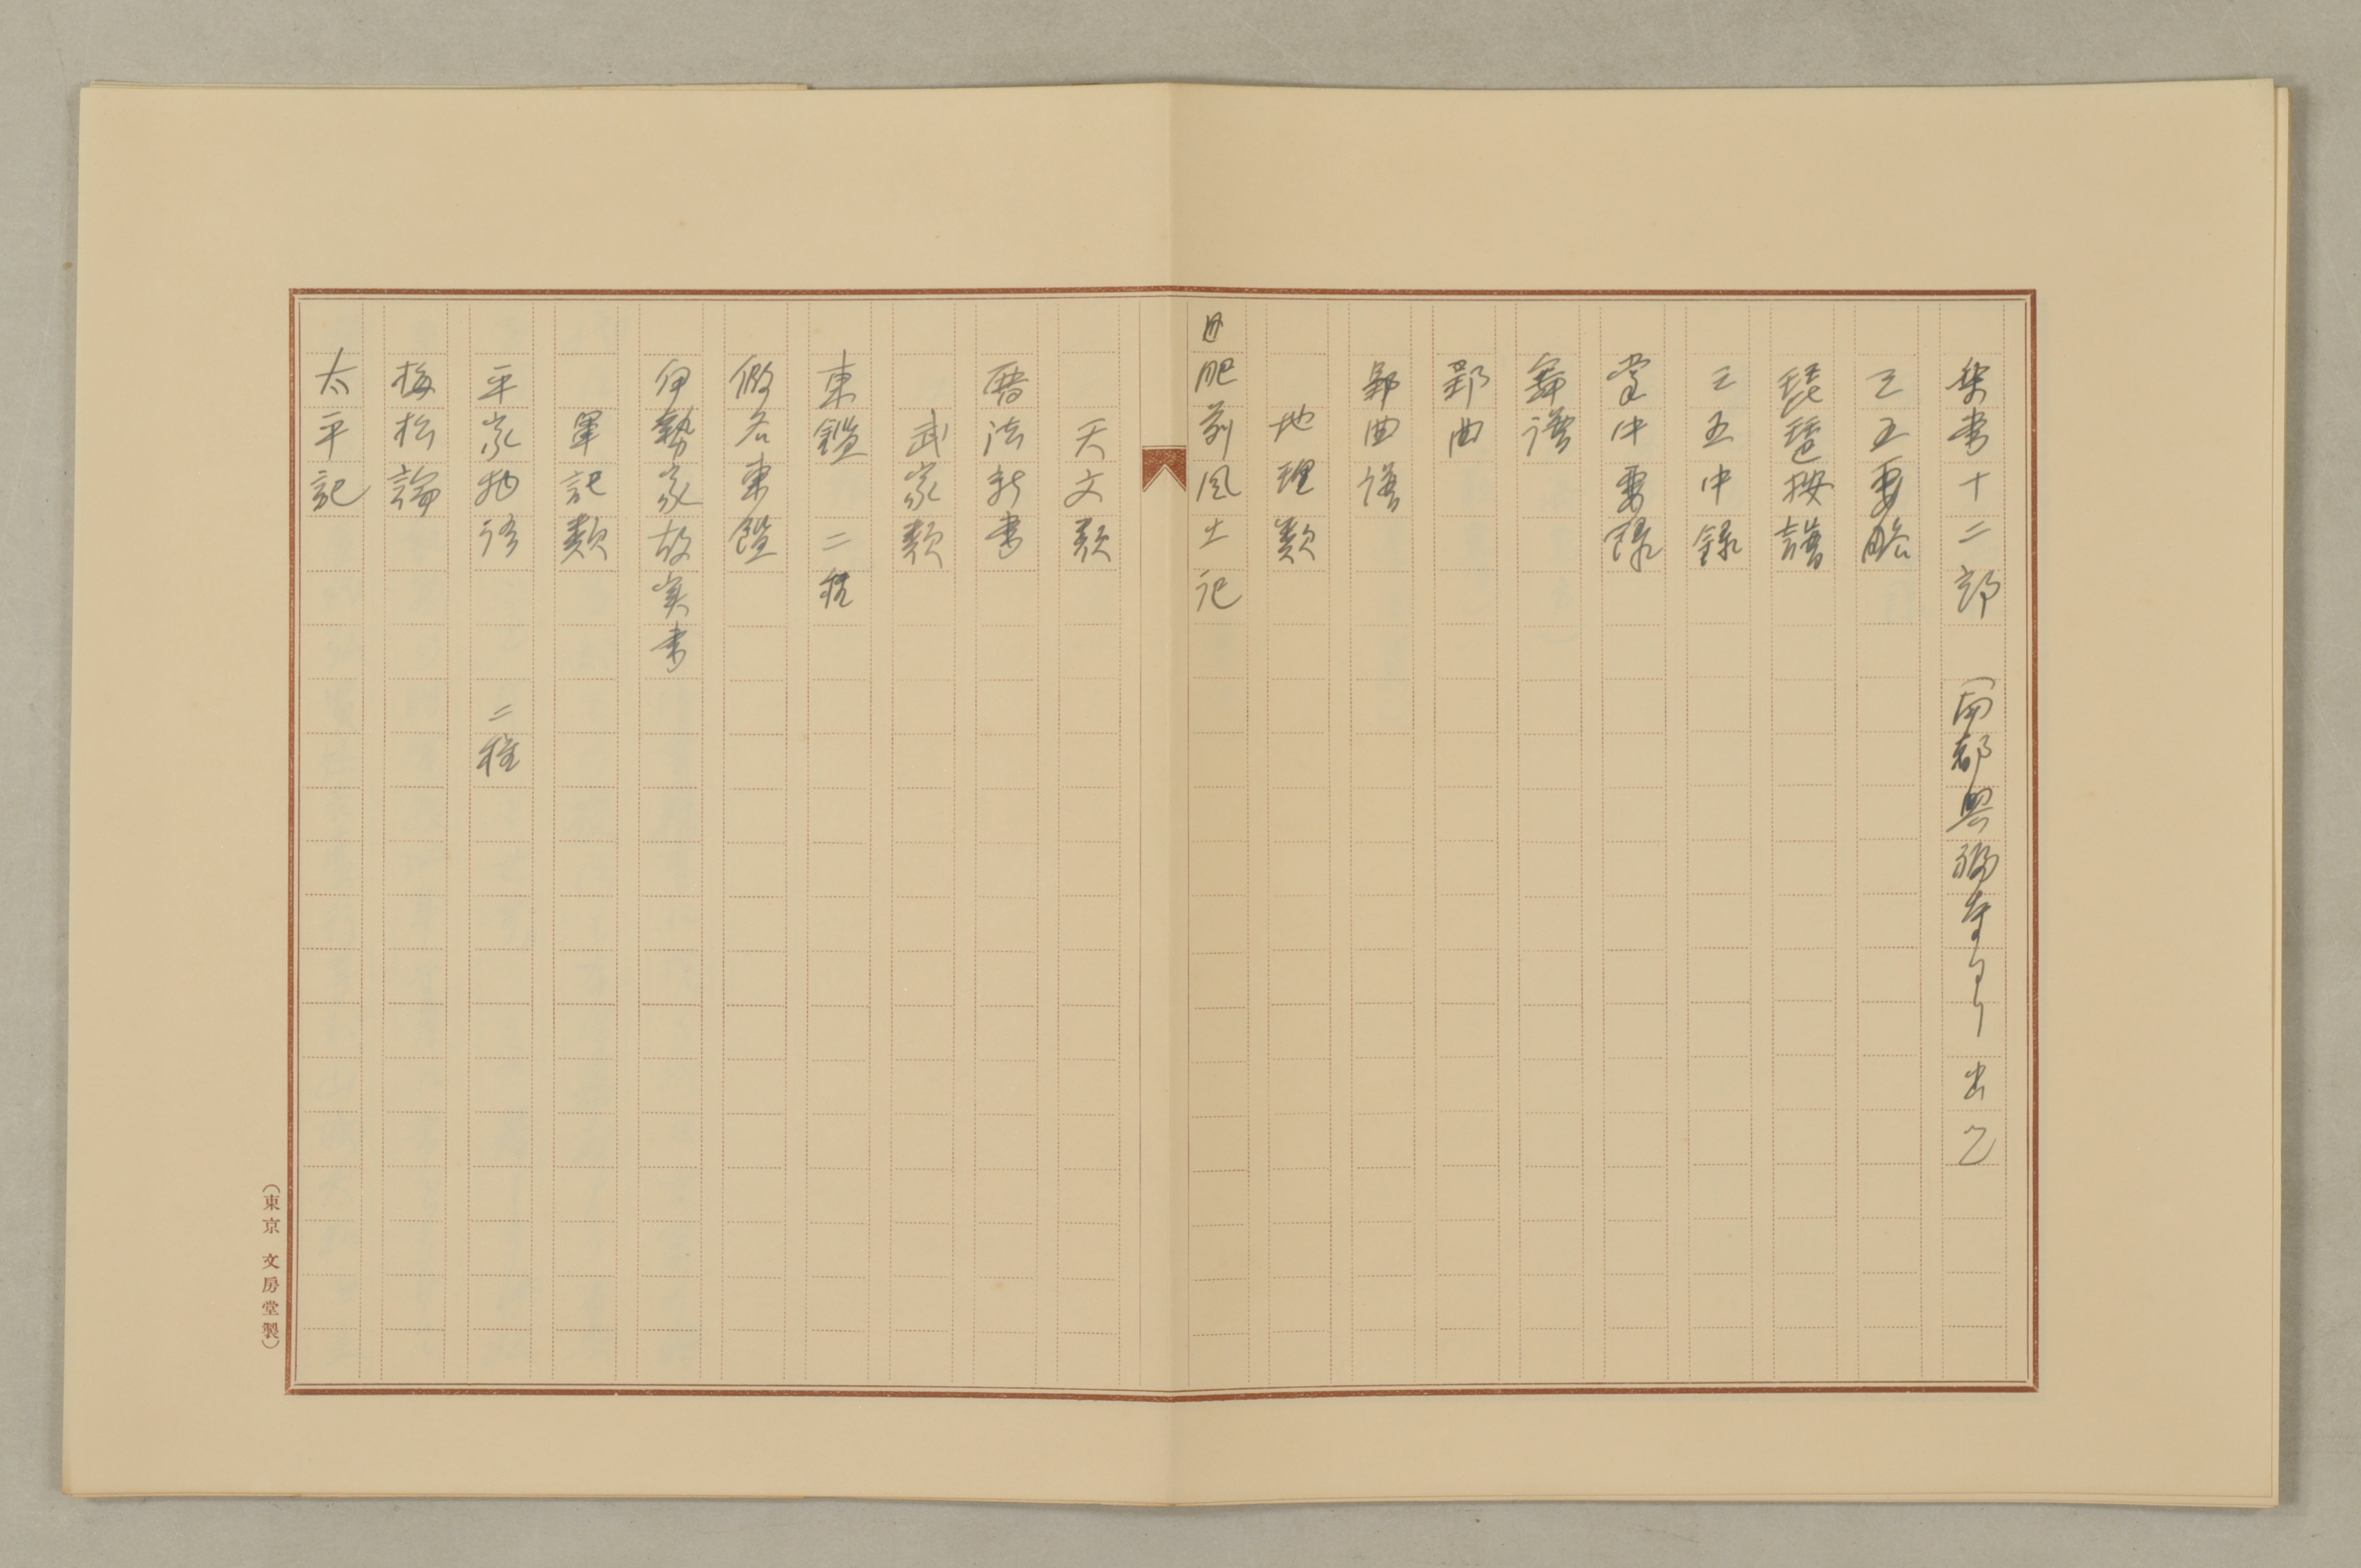 楽書十二部 (南都興福寺ヨリ出ツ
三五要略
琵琶按譜
三五中録
掌中要録
舞譜
郢曲
郢曲譜
地理類
肥前風土記
天文類
暦法新書
武家類
東鑑 二種
假名東鑑
伊勢家故実書
軍記類
平家物語 二種
梅松論
太平記
(東京 文房堂製)